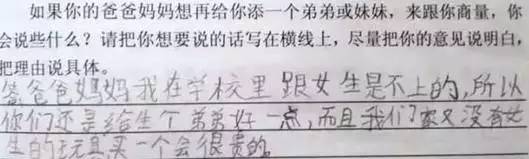 如果你的爸爸妈妈想再给你添一个弟弟或妹妹,来跟你商量,你
会说些什么?请把你想要说的话写在横线上,尽量把你的意见说明白,
把理由说具体。
答爸爸妈妈我在学校里跟女生是不上的,所以
你们还是给生个弟弟好一点,而且我们家又没有女
生的玩具买一个会很贵的。